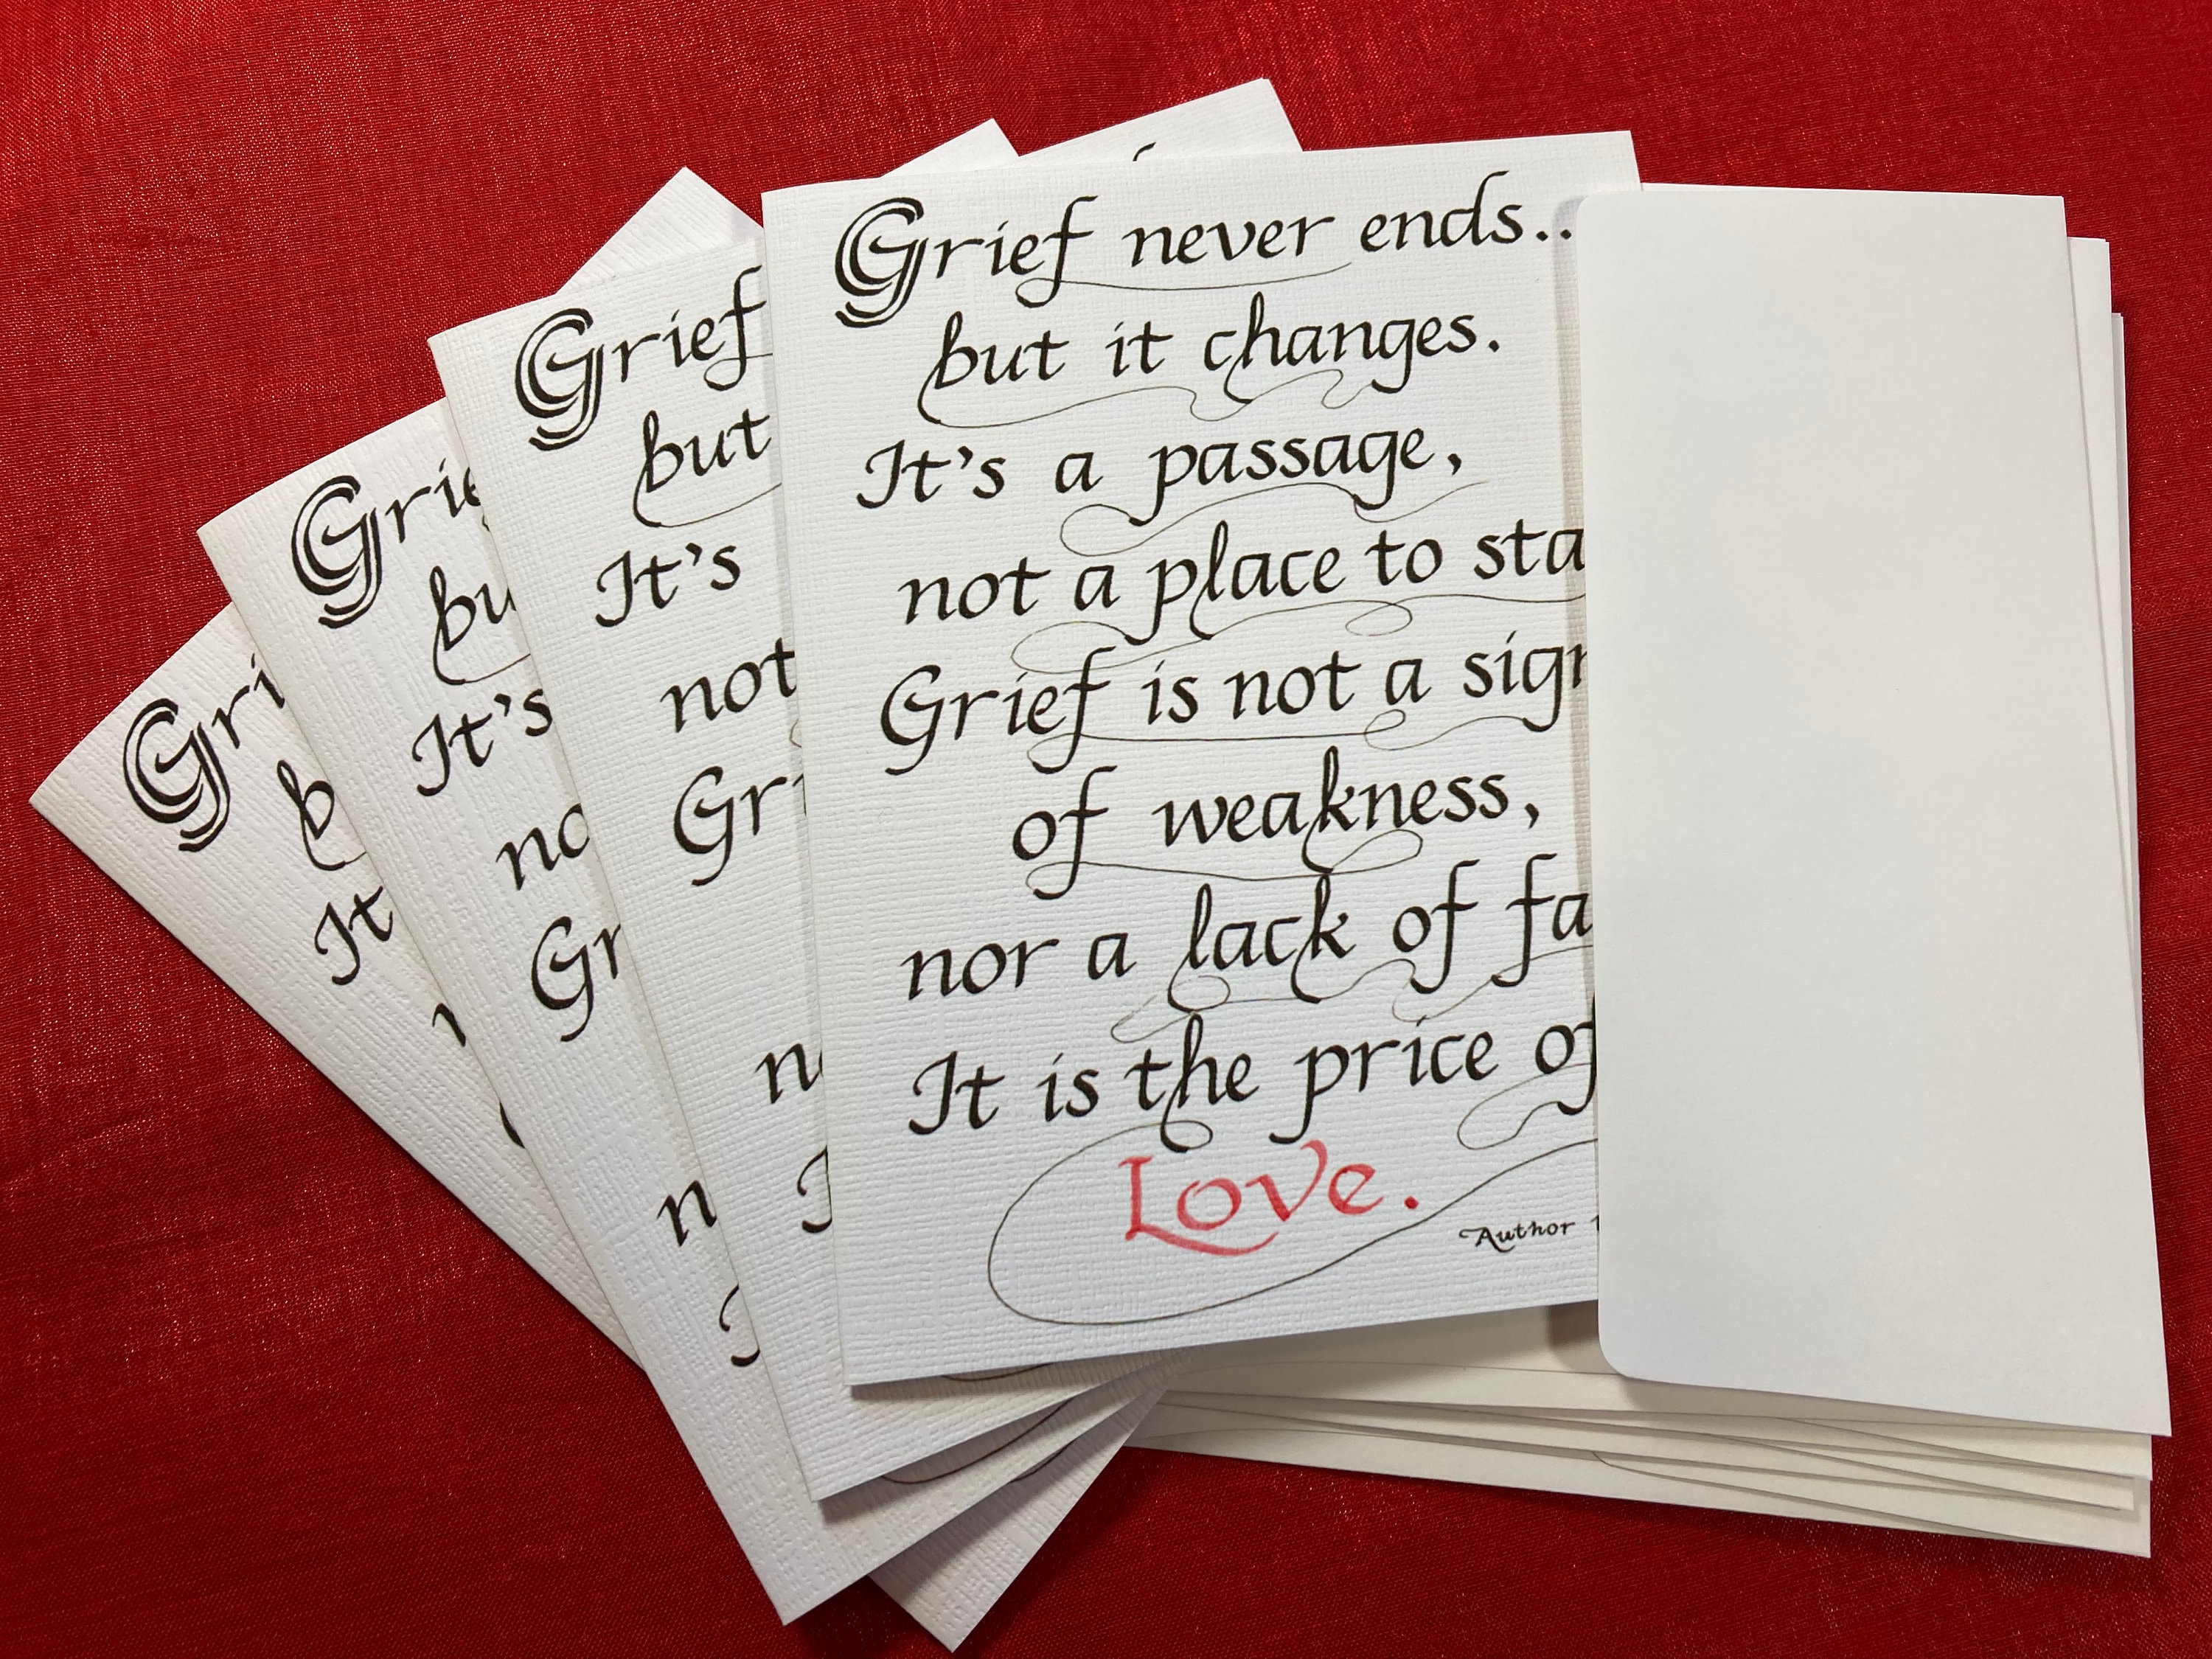 Grief never ends..
but it changes.
It's a passage,
not a place to sta
Grief is not a sign
of weakness,
nor a lack of fa
It is the price of
Love.
Author
Grief
but
It's
not
Gri
Grie
bu
It's
no
Gr
n
Gri
b
It